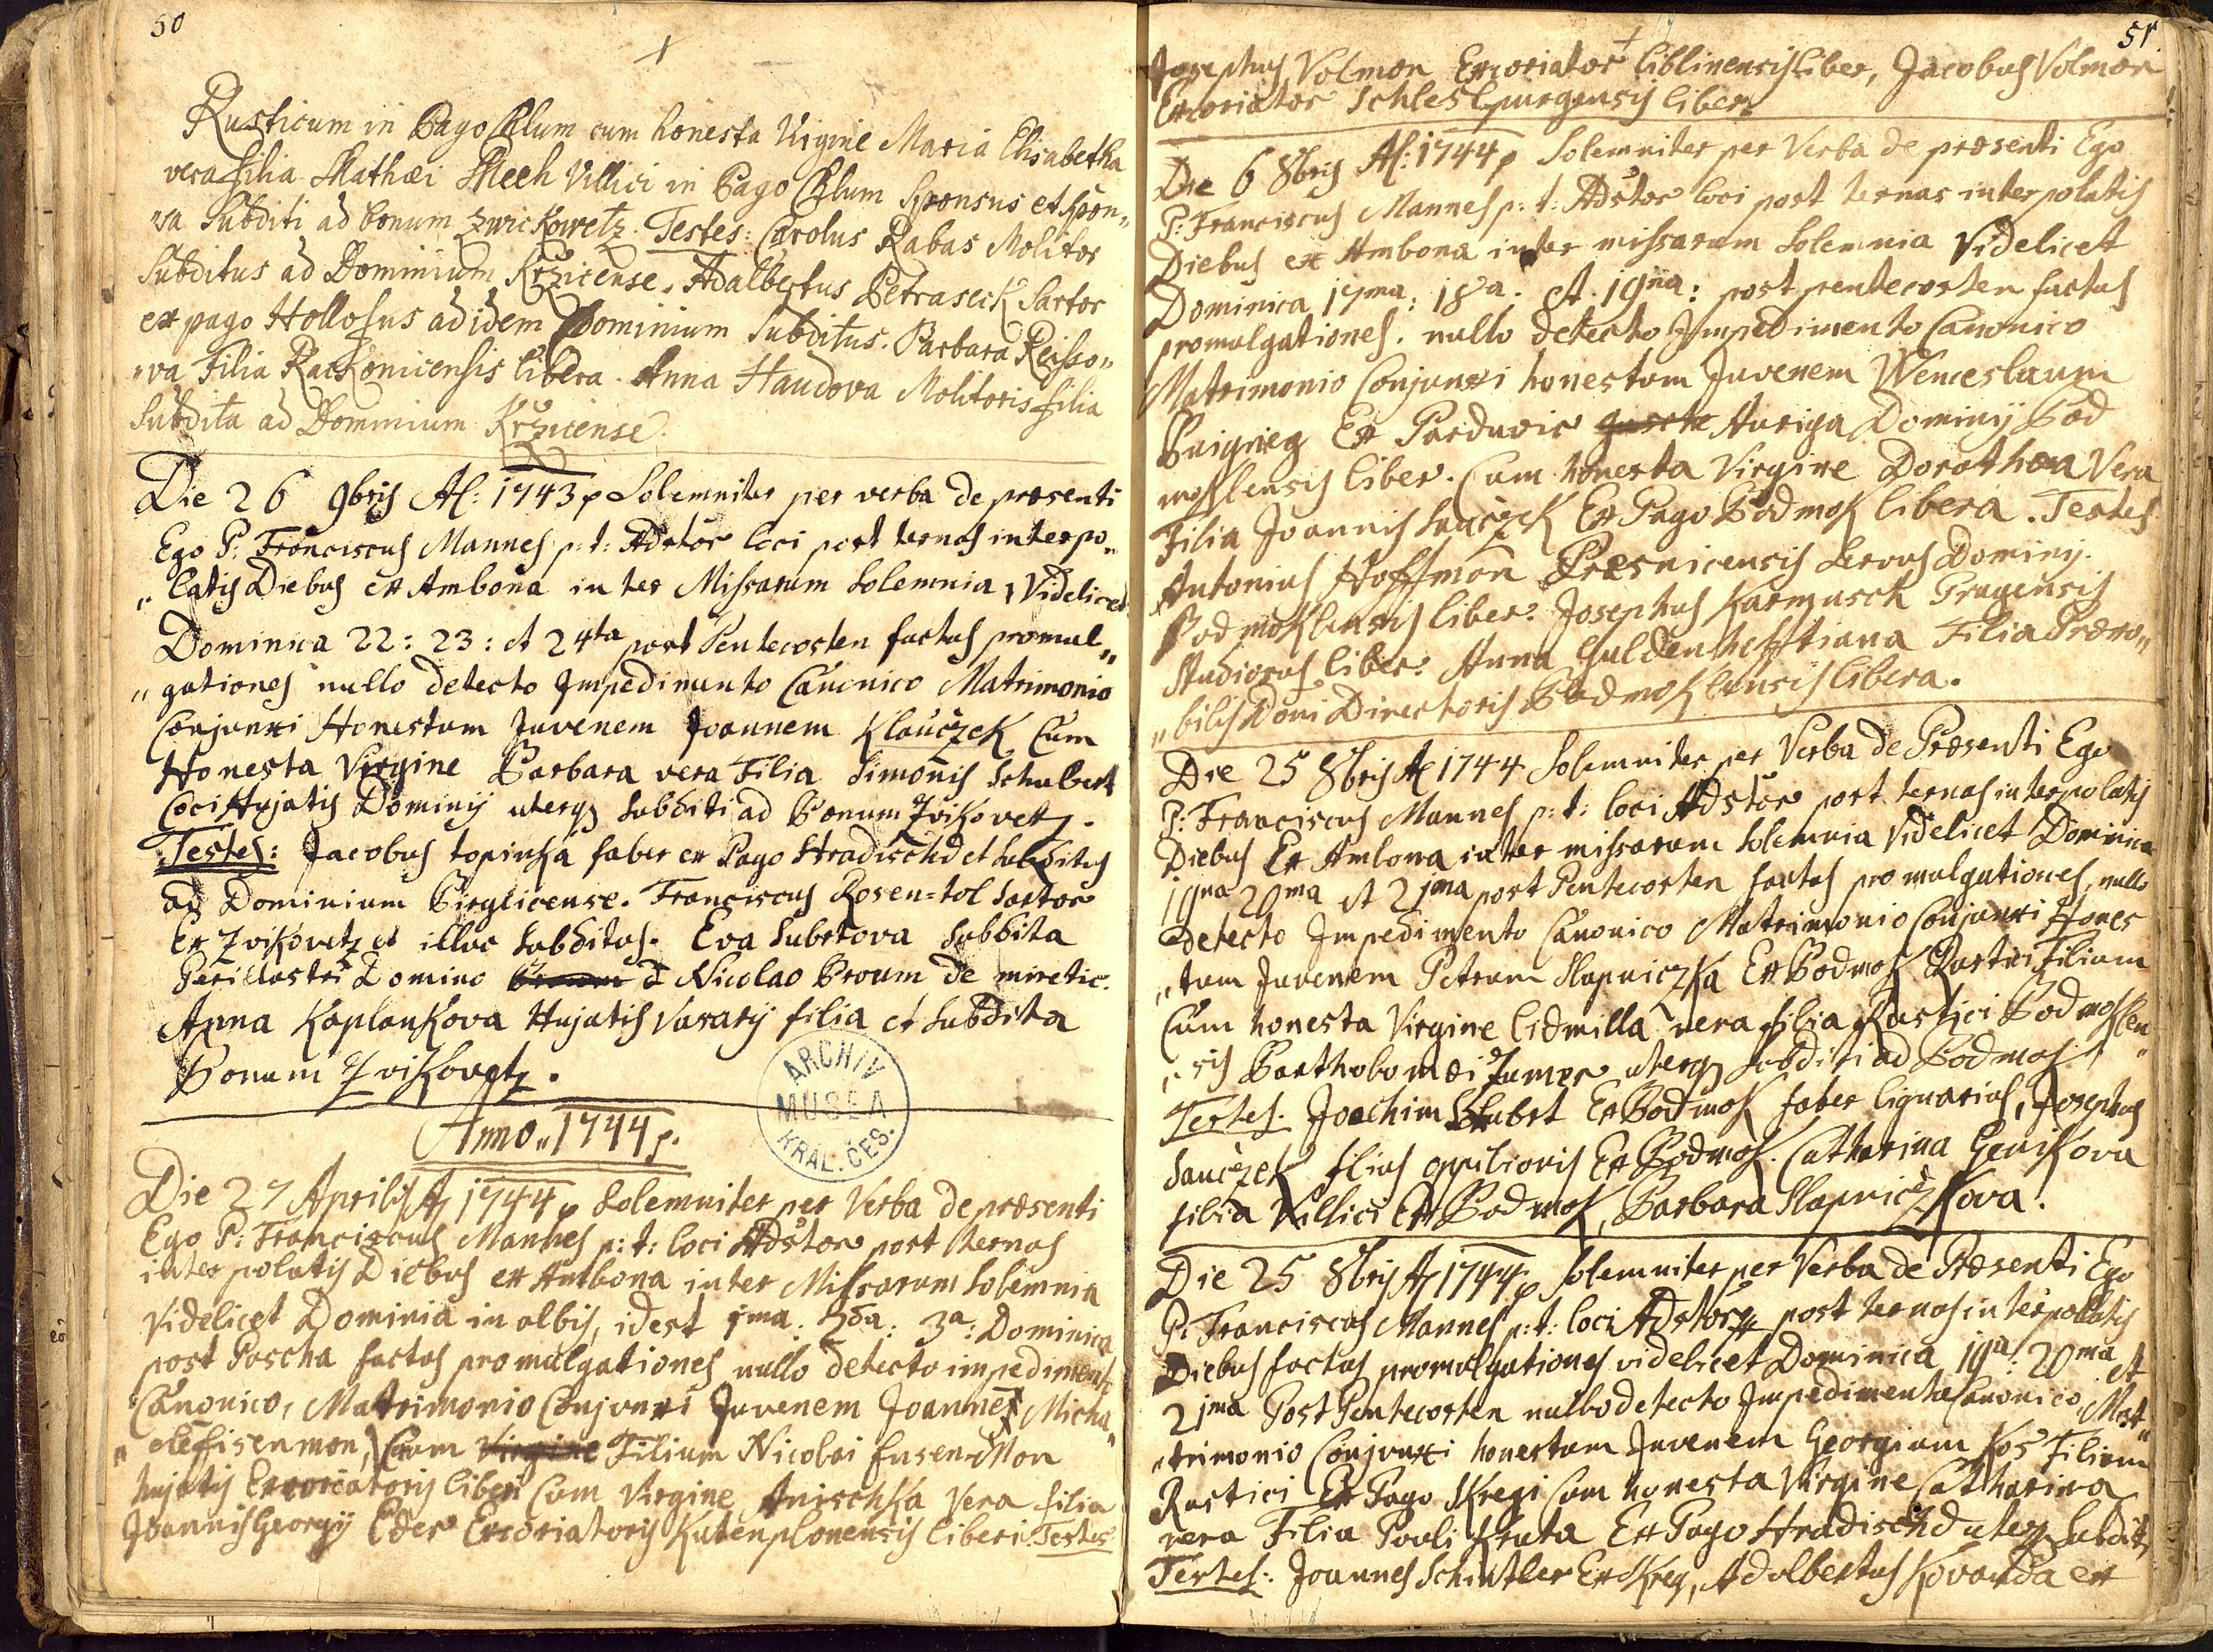 50
Rusticum in Pago Chlum cum honesta Virgine Maria Elisabetha
vera filia Mathæi Mech Villici in Pago Chlum Sponsus et spon„
„sa Subditi ad bonum Zwickowetz. Testes: Carolus Rabas Molitor
Subditus ad Dominium Krzicense. Adalbertus Petraseck Sartor
ex pago Hollosus ad idem Dominium Subditus. Barbara Reisso„
„va Filia Rackonicensis libera. Anna Haudova Molitoris filia
Subdita ad Dominium Krzicense.
Die 26 9bris A: 1743 Solemniter per verba de præsenti
Ego P: Franciscus Mannes p: t: Adstor loci post ternas interpo„
„latis Diebus ex Ambona inter Missarum Solemnia, Videlicet
Dominica 22: 23: et 24ta post Pentecosten factas promul„
„gationes nullo detecto Impedimento Canonico Matrimonio
Conjunxi Honestum Juvenem Joannem Klauczek Cum
Honesta Virgine Barbara vera Filia Simonis Schubert
Coci Hujatis Dominij uterq Subditi ad Bonum Zvikovetz.
Testes: Jacobus topinka faber ex Pago Hradischd et Subditus
ad Dominium Pirglicense. Franciscus Rosen=tol Sartor
Ex Zvikovetz et illuc Subditus. Eva Subrtova Subdita
Perillustri Domino d Nicolao Broum de miretic.
Anna Kaplankova Hujatis Vasarij filia et Subdita
Bonum Zvikovetz.
ARCHIV
MUSEA
KRÁL. ČES.
Anno„ 1744
Die 27 Aprilis A 1744 Solemniter per Verba de præsenti
Ego P: Franciscus Mannes p: t: loci Adstor post ternas
interpolatis Diebus ex Ambona inter Missarum Solemnia
Videlicet Dominia in albis, idest 1ma: 2da: 3a: Dominica
post Pascha factas promulgationes nullo detecto impedimento
Canonico, Matrimonio Conjunxi Juvenem Joannes Micha„
Cum Virgine Filium Nicolai Eusen-Mon
hujatis Excoriatoris liberi Cum Virgine Anischka Vera filia
Joannis Georgij Eder Excoriatoris Kutenplonensis liberi. Testes
51.
Josephus Volmon Excoriator liblinensis liber, Jacobus Volmon
Excoriator Schleslpurgensis liber.
Die 6 8bris A: 1744 Solemniter per Verba de præsenti Ego
P: Franciscus Mannes p: t: Adstor loci post ternas interpolatis
Diebus ex Ambona inter missarum Solemnia Videlicet
Dominica 17ma: 18a: et 19na: post pentecosten factas
promulgationes, nullo detecto Impedimento Canonico
Matrimonio Conjunxi honestum Juvenem Wenceslaum
Ex Parduvic Auriga Dominij Pod
moklensis liber. Cum honesta Virgine Dorothea Vera
Filia Joannis Sauczek Ex Pago Podmok libera. Testes
Antonius Hoffmon Presnicensis Servus Dominij
Podmoklensis liber. Josephus Karmasch Pragensis
Studiosus liber. Anna Guldenheftiana Filia Præno„
„bilis Dni Directoris Podmoklensis libera.
Die 25 8bris A 1744 Solemniter per Verba de Præsenti Ego
P: Franciscus Mannes p: t: loci Adstor post ternas interpolatis
Diebus Ex Ambona inter missarum Solemnia Videlicet Dominica
19na 20ma et 21ma post Pentecosten factas promulgationes, nullo
detecto Impedimento Canonico Matrimonio Conjunxi Hones
„tum Juvenem Petrum Slapniczka Ex Podmok Rustici Filium
Cum honesta Virgine lidmilla vera filia Rustici Podmoklen„
„sis Bartholomæi uterq Subditi ad Podmok
Testes. Joachim Schubrt Ex Podmok faber lignarius, Josephus
Sauczek filius opilionis Ex Podmok. Catharina Genikova
filia Villici Ex Podmok, Barbara Slapniczkova.
Die 25 8bris A 1744 Solemniter per Verba de Præsenti Ego
P: Franciscus Mannes p: t: loci Adstor post ternas interpollatis
Diebus factas promulgationes videlicet Dominica 19na: 20ma et
21ma Post Pentecosten nullo detecto Impedimento Canonico Mat„
„trimonio Conjunxi honestum Juvenem Georgium Kos Filium
Rustici Ex Pago Skregi Cum honesta Virgine Catharina
vera Filia Pauli Kruta Ex Pago Hradischd uterq Subdit,
Testes: Joannes Schintler Ex Skrey, Adolbertus Kovanda ex